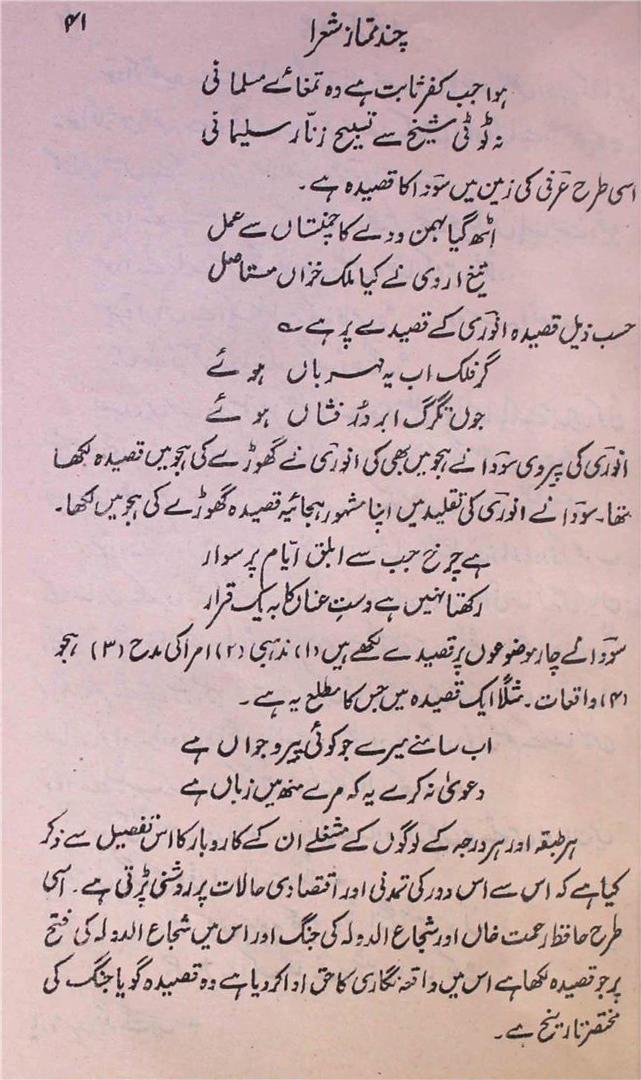 ۴۱
چند ممتاز شعرا
ہوا جب کفر ثابت ہے وہ تمغائے مسلمانی
نہ ٹوٹی شیخ سے تسبیح زنّار سلیمانی
اسی طرح عرفی کی زمین میں سوؔدا کا قصیدہ ہے۔
اٹھ گیا بہمن و دے کا چمنستاں سے عمل
تیغ اردی نے کیا ملک خزاں مستاصل
حسب ذیل قصیدہ انوؔری کے قصیدے پر ہے ؎
گر فلک اب یہ مہرباں ہوئے
جوں تگرگ ابر دُر فشاں ہوئے
انوؔری کی پیروی سوؔدا نے ہجو میں بھی کی انوؔری نے گھوڑے کی ہجو میں قصیدہ لکھا
تھا۔ سوؔدا نے انوؔری کی تقلید میں اپنا مشہور ہجائیہ قصیدہ گھوڑے کی ہجو میں لکھا۔
ہے چرخ جب سے ابلق ایّام پر سوار
رکھتا نہیں ہے دستِ عناں کا بہ یک قرار
سوؔدا نے چار موضوعوں پر قصیدے لکھے ہیں (۱) مذہبی (۲) امرا کی مدح (۳) ہجو
(۴) واقعات۔ مثلاً ایک قصیدہ میں جس کا مطلع یہ ہے۔
اب سامنے میرے جو کوئی پیر و جواں ہے
دعویٰ نہ کرے یہ کہ مرے منھ میں زباں ہے
ہر طبقہ اور ہر درجہ کے لوگوں کے مشغلے ان کے کاروبار کا اس تفصیل سے ذکر
کیا ہے کہ اس سے اس دور کی تمدنی اور اقتصادی حالات پر روشنی پڑتی ہے۔ اسی
طرح حافظ رحمت خاں اور شجاع الدولہ کی جنگ اور اس میں شجاع الدولہ کی فتح
پر جو قصیدہ لکھا ہے اس میں واقعہ نگاری کا حق ادا کر دیا ہے وہ قصیدہ گویا جنگ کی
مختصر تاریخ ہے۔